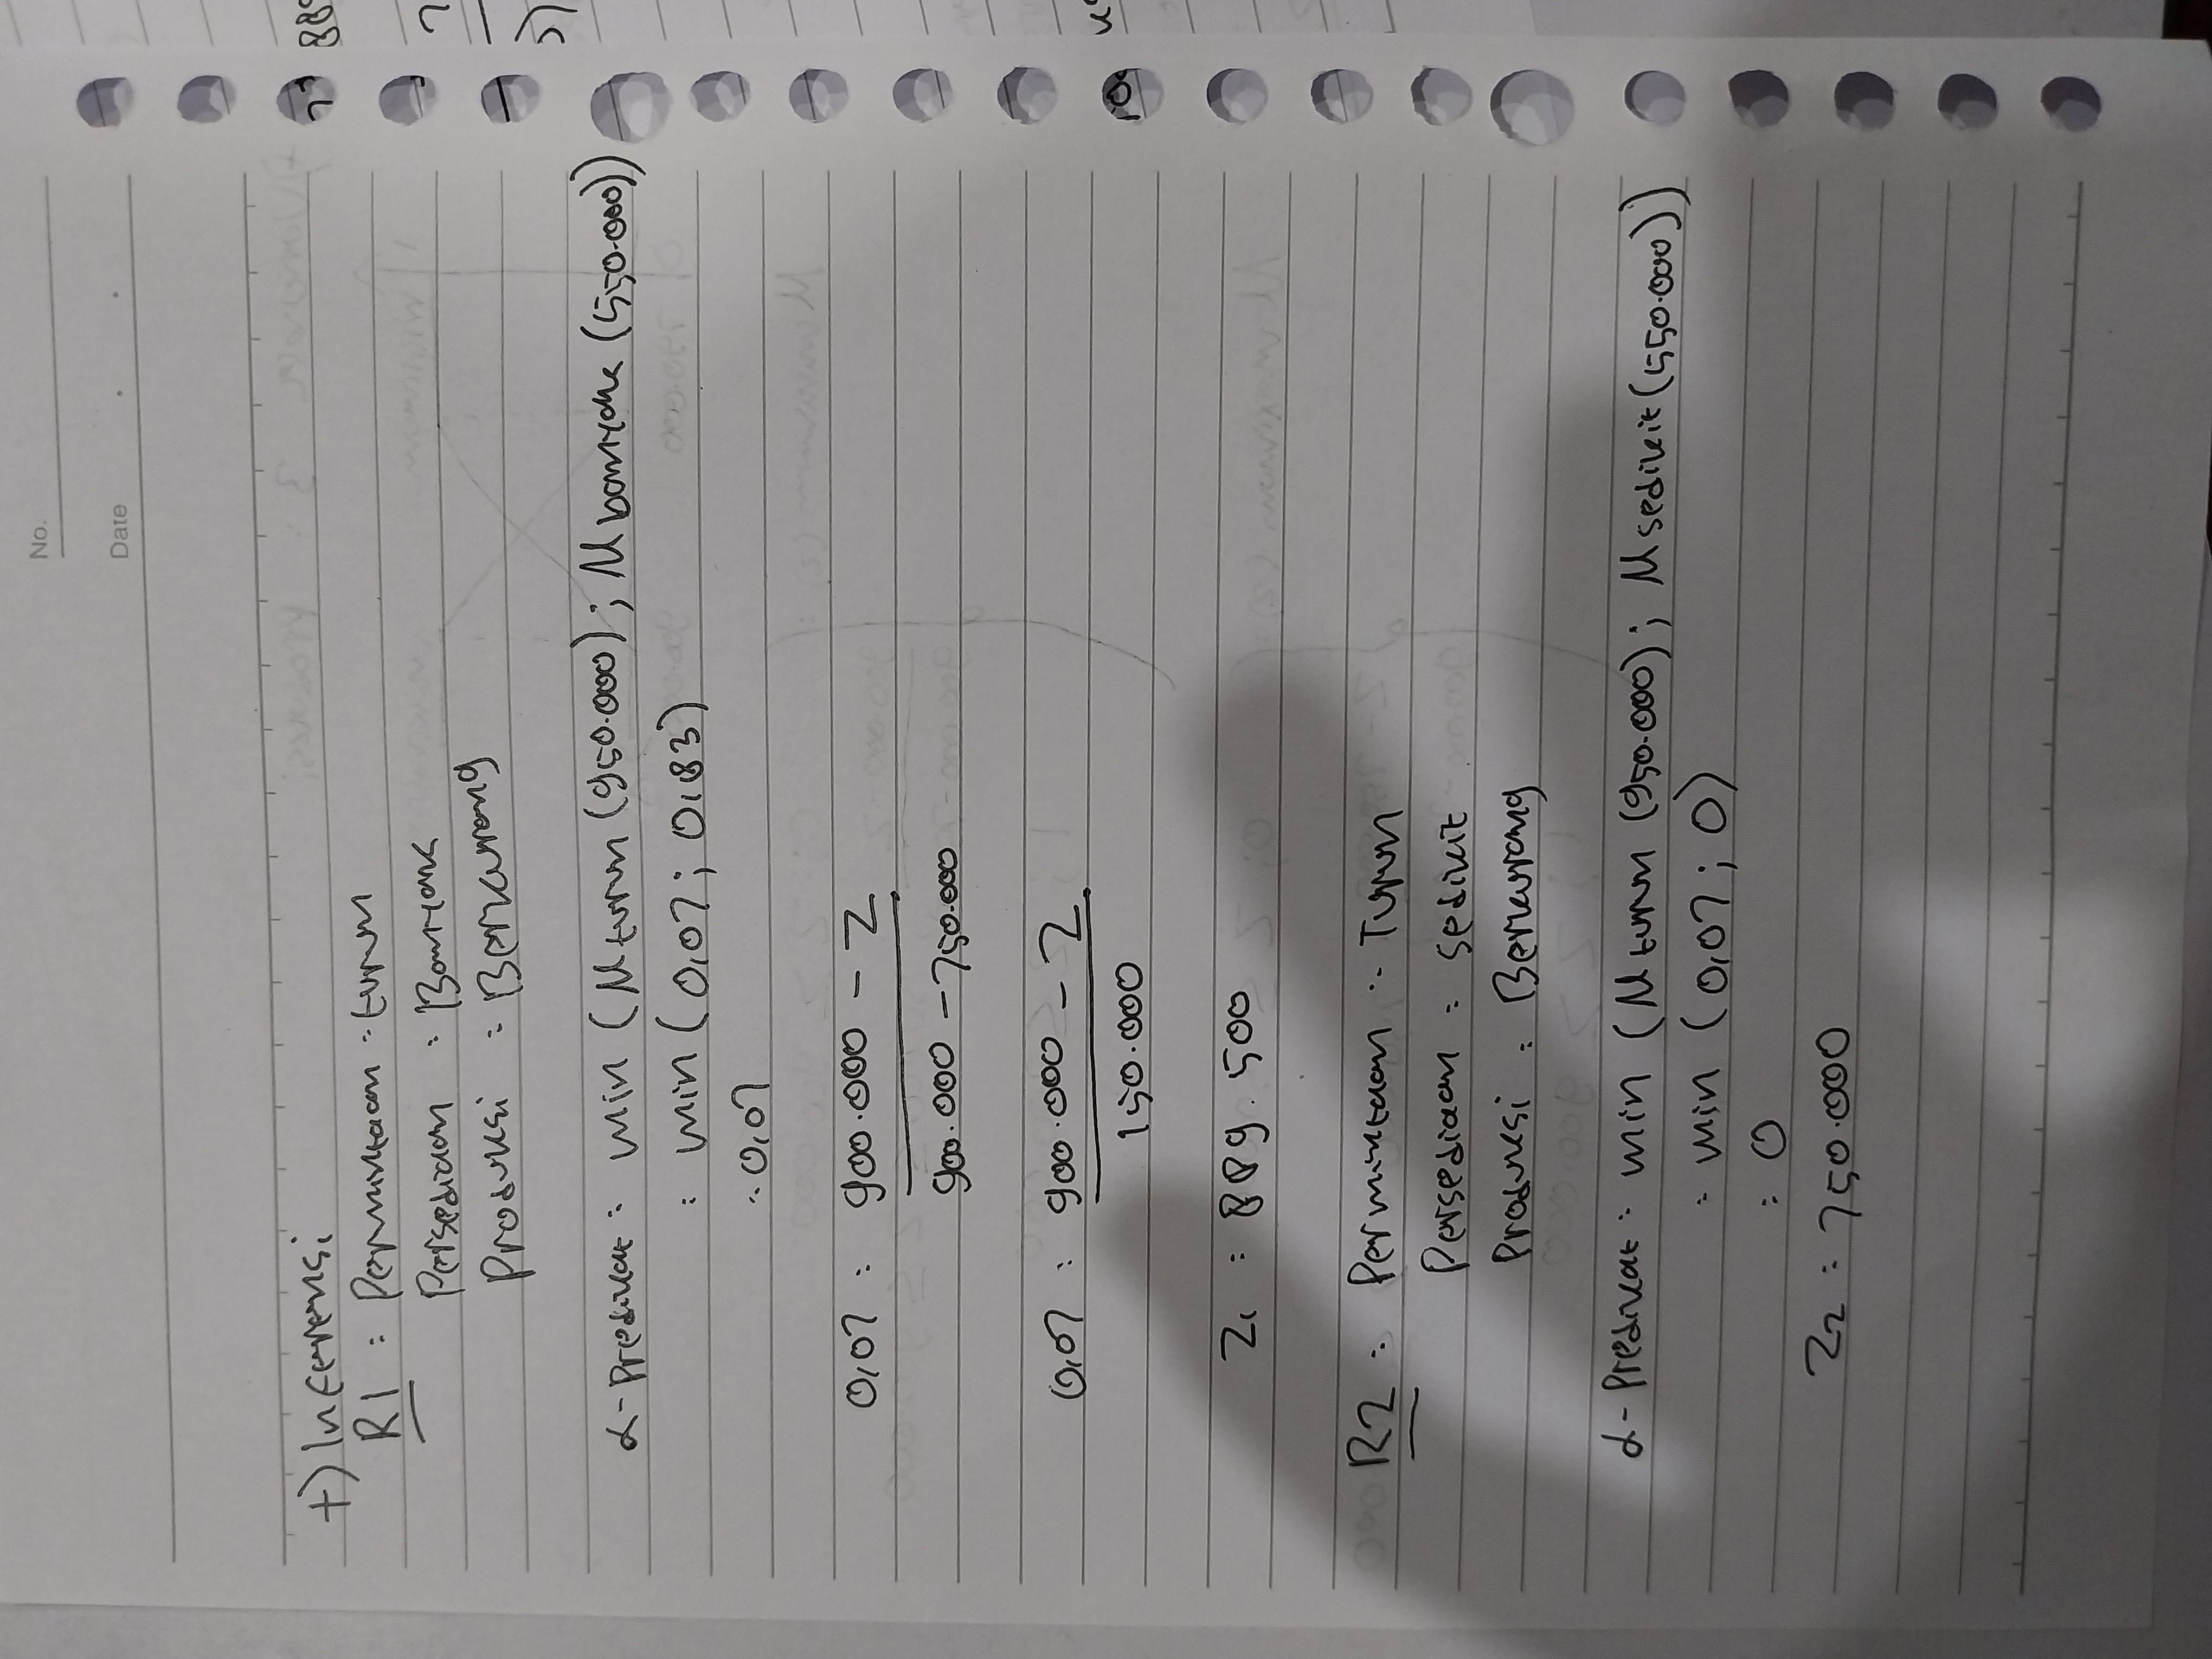 No.
Date
+) Inferensi
R1 : Permintaan : turun
Persediaan : Banyak
Produksi : Berkurang
α-Predikat : min (M turun (950.000) ; M banyak (550.000))
: min (0,07 ; 0,83)
: 0,07
0,07 : 900.000 - Z
900.000 - 750.000
0,07 : 900.000 - Z
150.000
Z1 : 889.500
R2 : Permintaan : Turun
Persediaan : sedikit
Produksi : Berkurang
α-Predikat : min (M turun (950.000) ; M sedikit (550.000))
: min (0,07 ; 0)
: 0
Z2 : 750.000